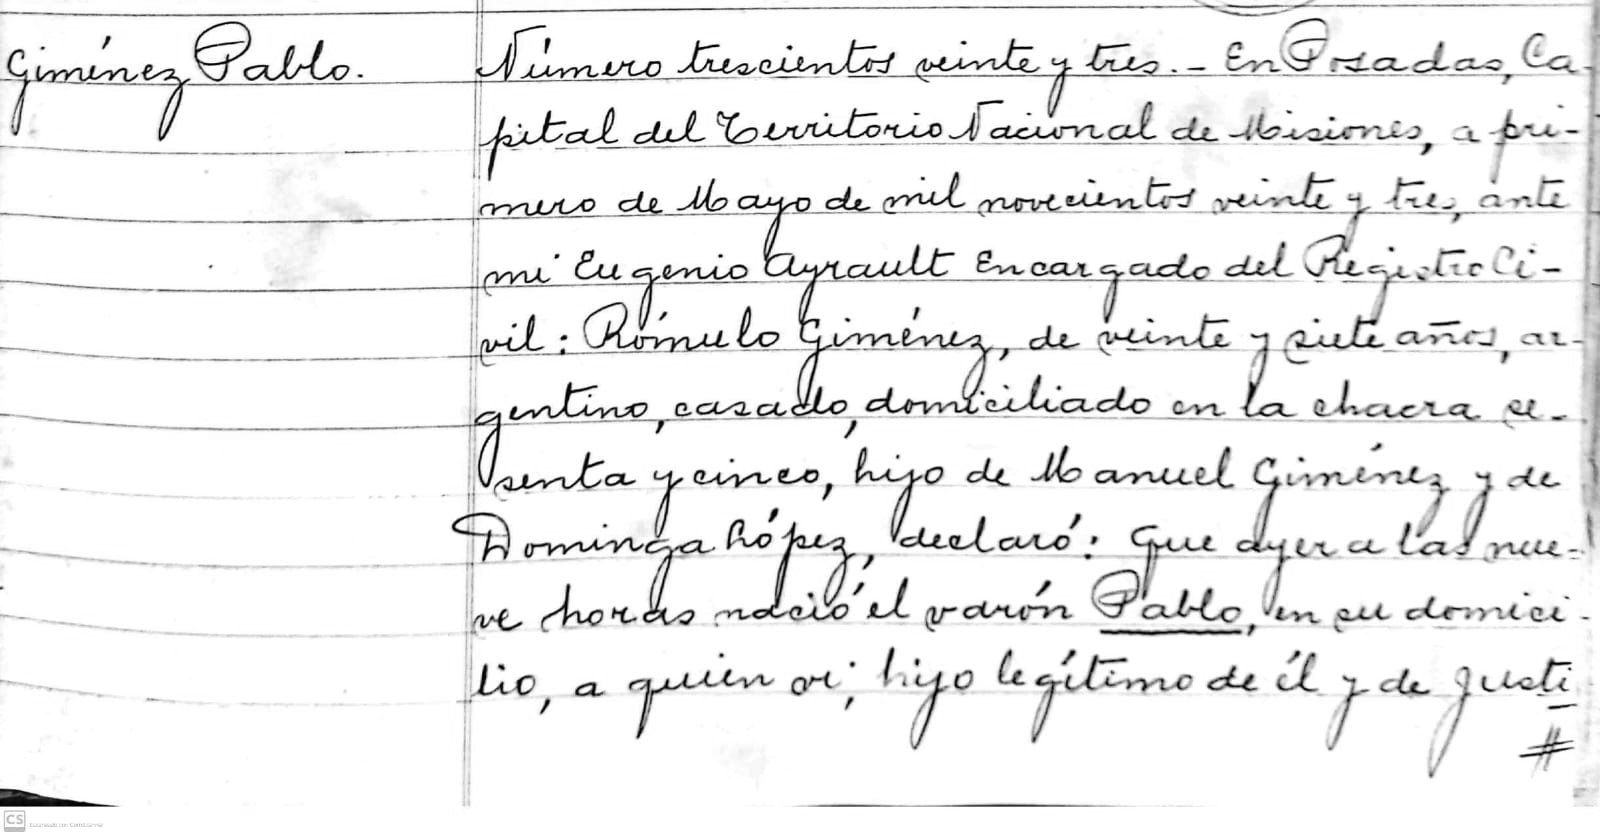 Giménez Pablo.
Número trescientos veinte y tres.- En Posadas, Ca-
pital del Territorio Nacional de Misiones, a pri-
mero de Mayo de mil novecientos veinte y tres, ante
mi Eugenio Ayrault Encargado del Registro Ci-
vil: Rómulo Giménez, de veinte y siete años, ar-
gentino, casado, domiciliado en la chacra se-
senta y cinco, hijo de Manuel Giménez y de
Dominga López, declaró: Que ayer a las nue-
ve horas nació el varón Pablo, en su domici-
lio, a quien vi; hijo legítimo de él y de Justi
#
CS
Escaneado con CamScanner